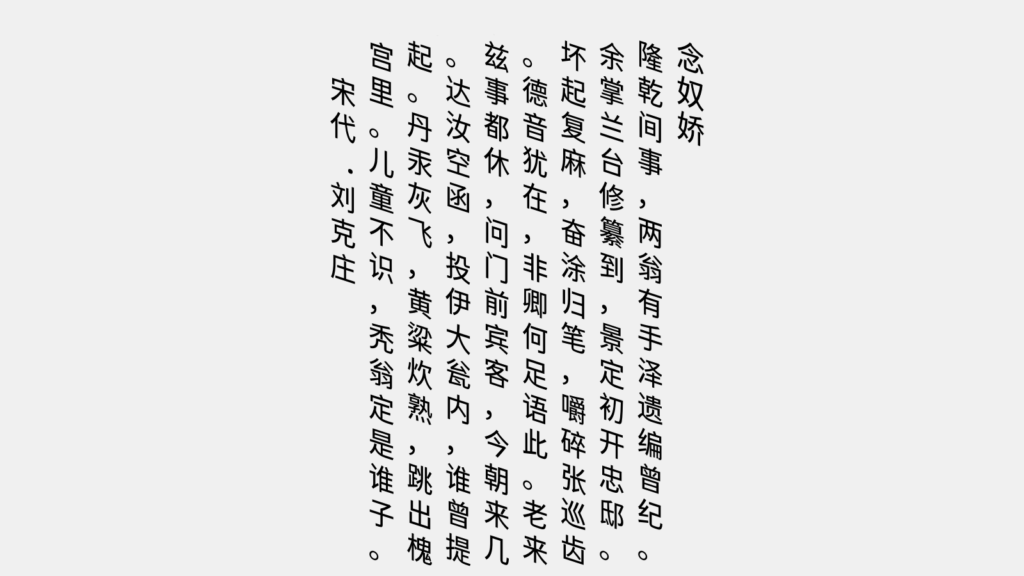 念奴娇
隆乾间事，两翁有手泽遗编曾纪。
余掌兰台修纂到，景定初开忠邸。
坏起复麻，奋涂归笔，嚼碎张巡齿
。德音犹在，非卿何足语此。老来
兹事都休，问门前宾客，今朝来几
。达汝空函，投伊大瓮内，谁曾提
起。丹汞灰飞，黄粱炊熟，跳出槐
宫里。儿童不识，秃翁定是谁子。
宋代．刘克庄